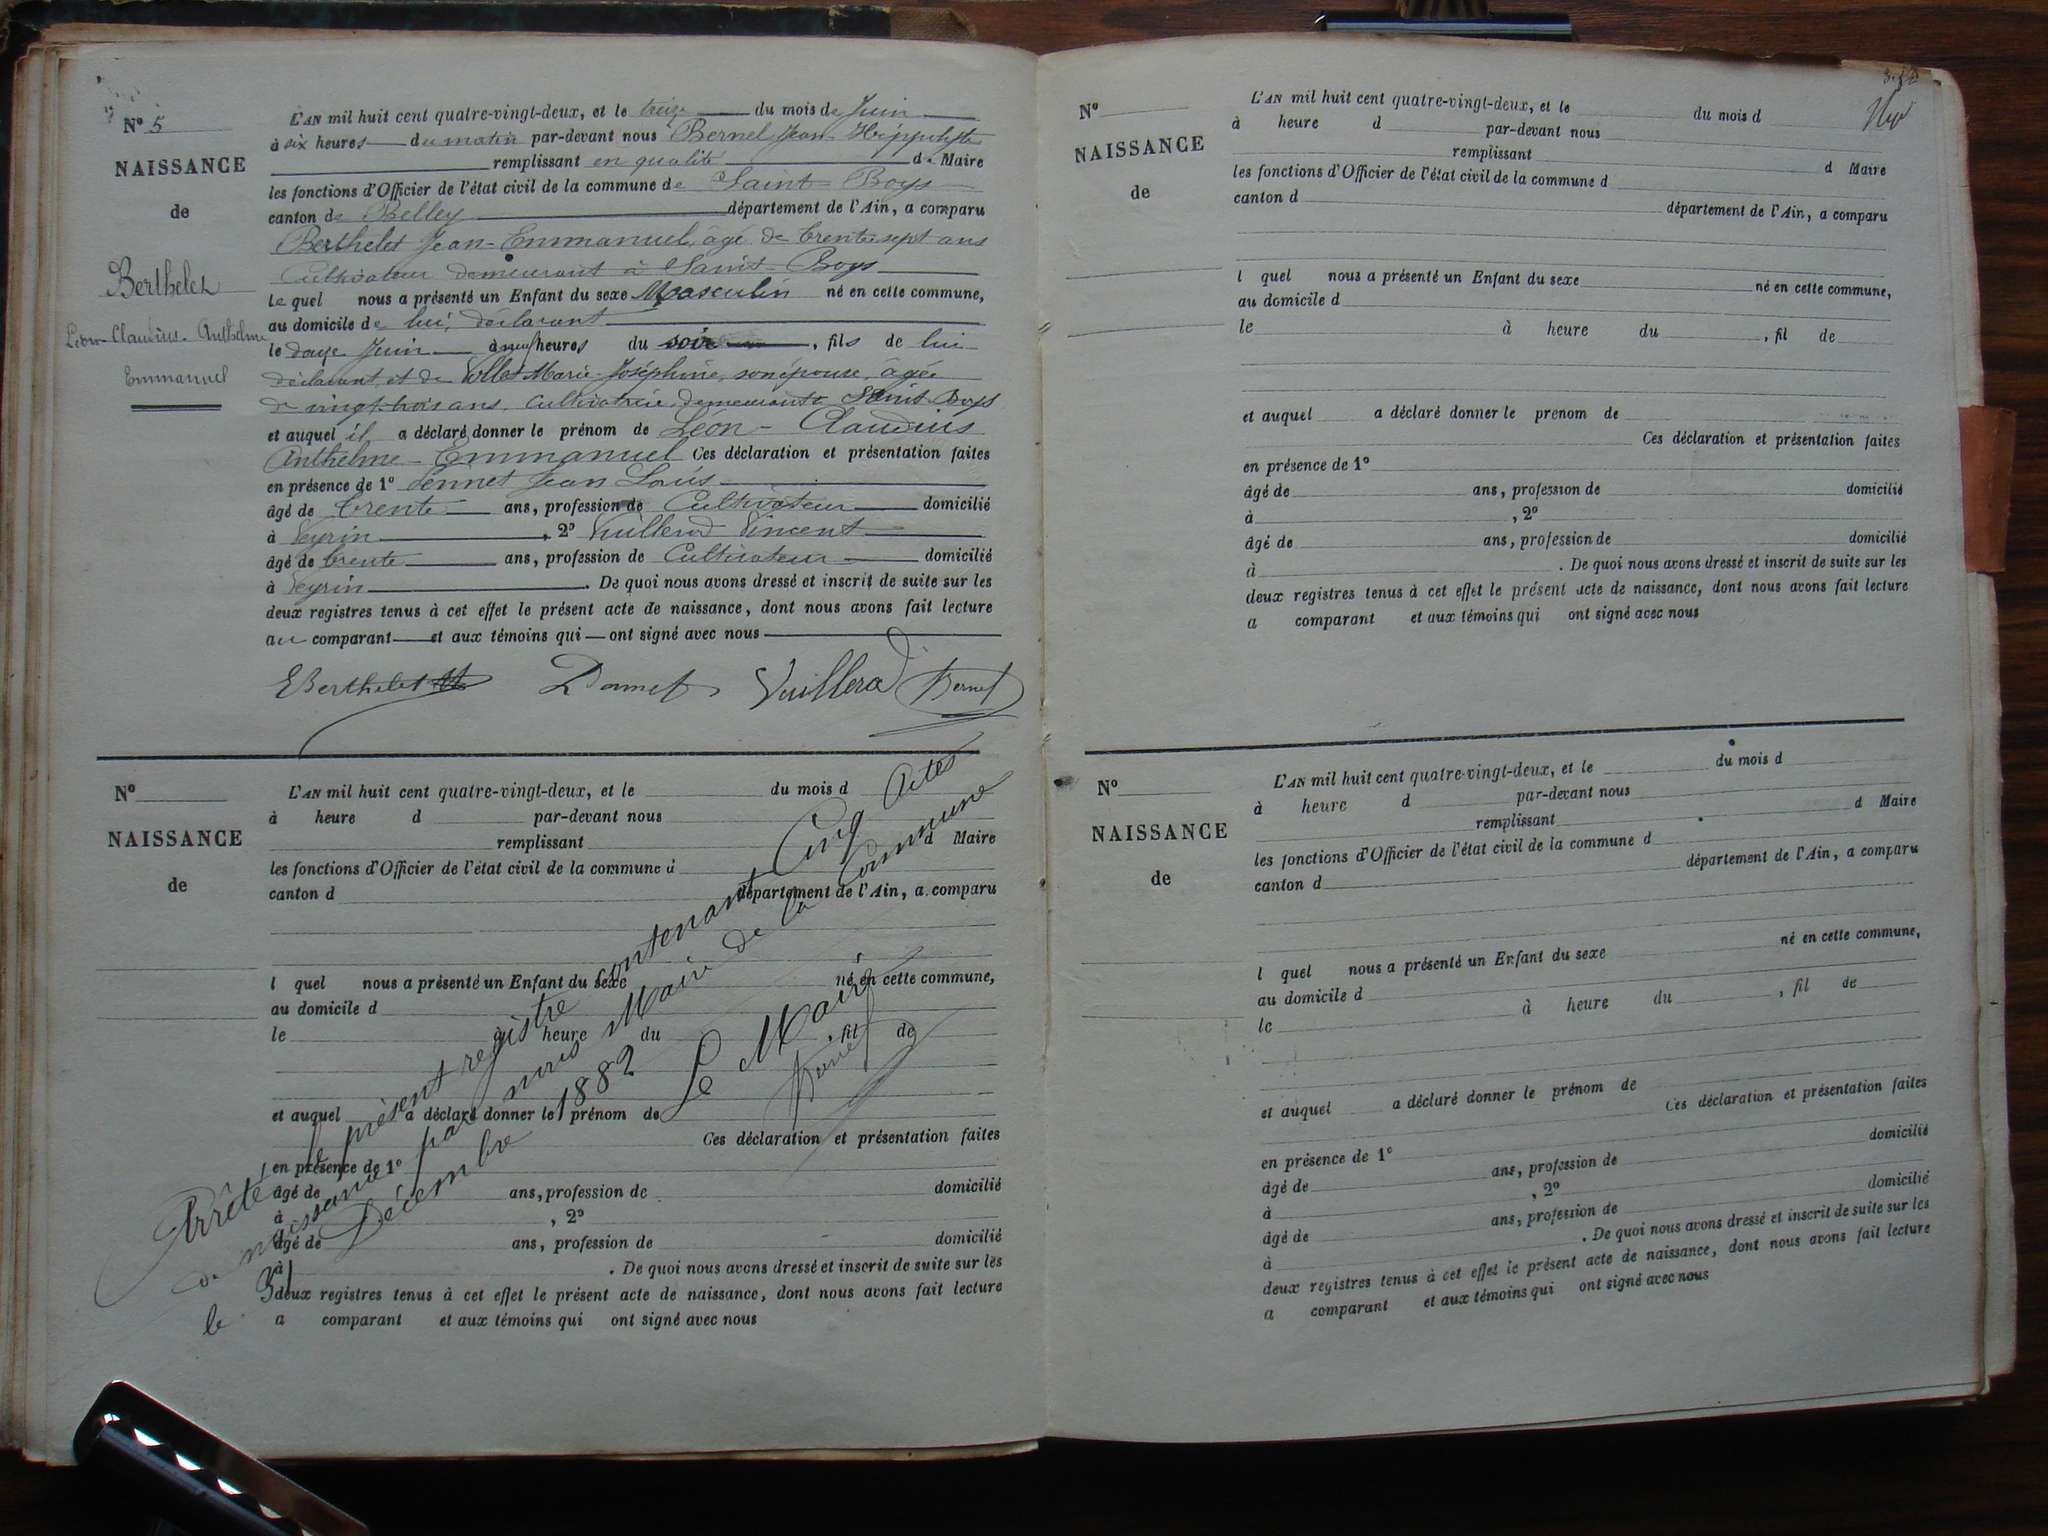 Nº 5
NAISSANCE
de
Berthelet
Léon-Claudius-Anthelme
Emmanuel
L'AN mil huit cent quatre-vingt-deux, et le treize du mois de Juin
à six heures du matin par-devant nous Bernel Jean-Hippolyte
remplissant en qualité de Maire
les fonctions d'Officier de l'état civil de la commune de Saint-Boys
canton de Belley département de l'Ain, a comparu
Berthelet Jean-Emmanuel, âgé de trente-sept ans
Cultivateur demeurant à Saint-Boys
le quel nous a présenté un Enfant du sexe Masculin né en cette commune,
au domicile de lui, déclarant
le douze Juin à neuf heures du soir, fils de lui
déclarant et de Marie-Joséphine, son épouse, âgée
de vingt-trois ans, cultivatrice demeurant à Saint-Boys
et auquel il a déclaré donner le prénom de Léon-Claudius
Anthelme-Emmanuel Ces déclaration et présentation faites
en présence de 1º Jean Louis
âgé de trente ans, profession de Cultivateur domicilié
à Veyrin, 2º Vuillerod Vincent
âgé de trente ans, profession de Cultivateur domicilié
à Veyrin. De quoi nous avons dressé et inscrit de suite sur les
deux registres tenus à cet effet le présent acte de naissance, dont nous avons fait lecture
au comparant et aux témoins qui ont signé avec nous
EBerthelet Vuillerod Bernel
Nº
NAISSANCE
de
L'AN mil huit cent quatre-vingt-deux, et le du mois d
à heure d par-devant nous
remplissant d Maire
les fonctions d'Officier de l'état civil de la commune d
canton d département de l'Ain, a comparu
l quel nous a présenté un Enfant du sexe né en cette commune,
au domicile d
le à heure du , fil de
et auquel a déclaré donner le prénom de
Ces déclaration et présentation faites
en présence de 1º
âgé de ans, profession de domicilié
à , 2º
âgé de ans, profession de domicilié
à . De quoi nous avons dressé et inscrit de suite sur les
deux registres tenus à cet effet le présent acte de naissance, dont nous avons fait lecture
a comparant et aux témoins qui ont signé avec nous
Arrêté le présent registre contenant Cinq Actes
de naissance par nous Maire de la Commune
le 31 Décembre 1882
Le Maire
Bernel
Nº
NAISSANCE
de
L'AN mil huit cent quatre-vingt-deux, et le du mois d
à heure d par-devant nous
remplissant d Maire
les fonctions d'Officier de l'état civil de la commune d
canton d département de l'Ain, a comparu
l quel nous a présenté un Enfant du sexe né en cette commune,
au domicile d
le à heure du , fil de
et auquel a déclaré donner le prenom de
Ces déclaration et présentation faites
en présence de 1º
âgé de ans, profession de domicilié
à , 2º
âgé de ans, profession de domicilié
à . De quoi nous avons dressé et inscrit de suite sur les
deux registres tenus à cet effet le présent acte de naissance, dont nous avons fait lecture
a comparant et aux témoins qui ont signé avec nous
Nº
NAISSANCE
de
L'AN mil huit cent quatre-vingt-deux, et le du mois d
à heure d par-devant nous
remplissant d Maire
les fonctions d'Officier de l'état civil de la commune d
canton d département de l'Ain, a comparu
l quel nous a présenté un Enfant du sexe né en cette commune,
au domicile d
le à heure du , fil de
et auquel a déclaré donner le prénom de
Ces déclaration et présentation faites
en présence de 1º
âgé de ans, profession de domicilié
à , 2º
âgé de ans, profession de domicilié
à . De quoi nous avons dressé et inscrit de suite sur les
deux registres tenus à cet effet le présent acte de naissance, dont nous avons fait lecture
a comparant et aux témoins qui ont signé avec nous